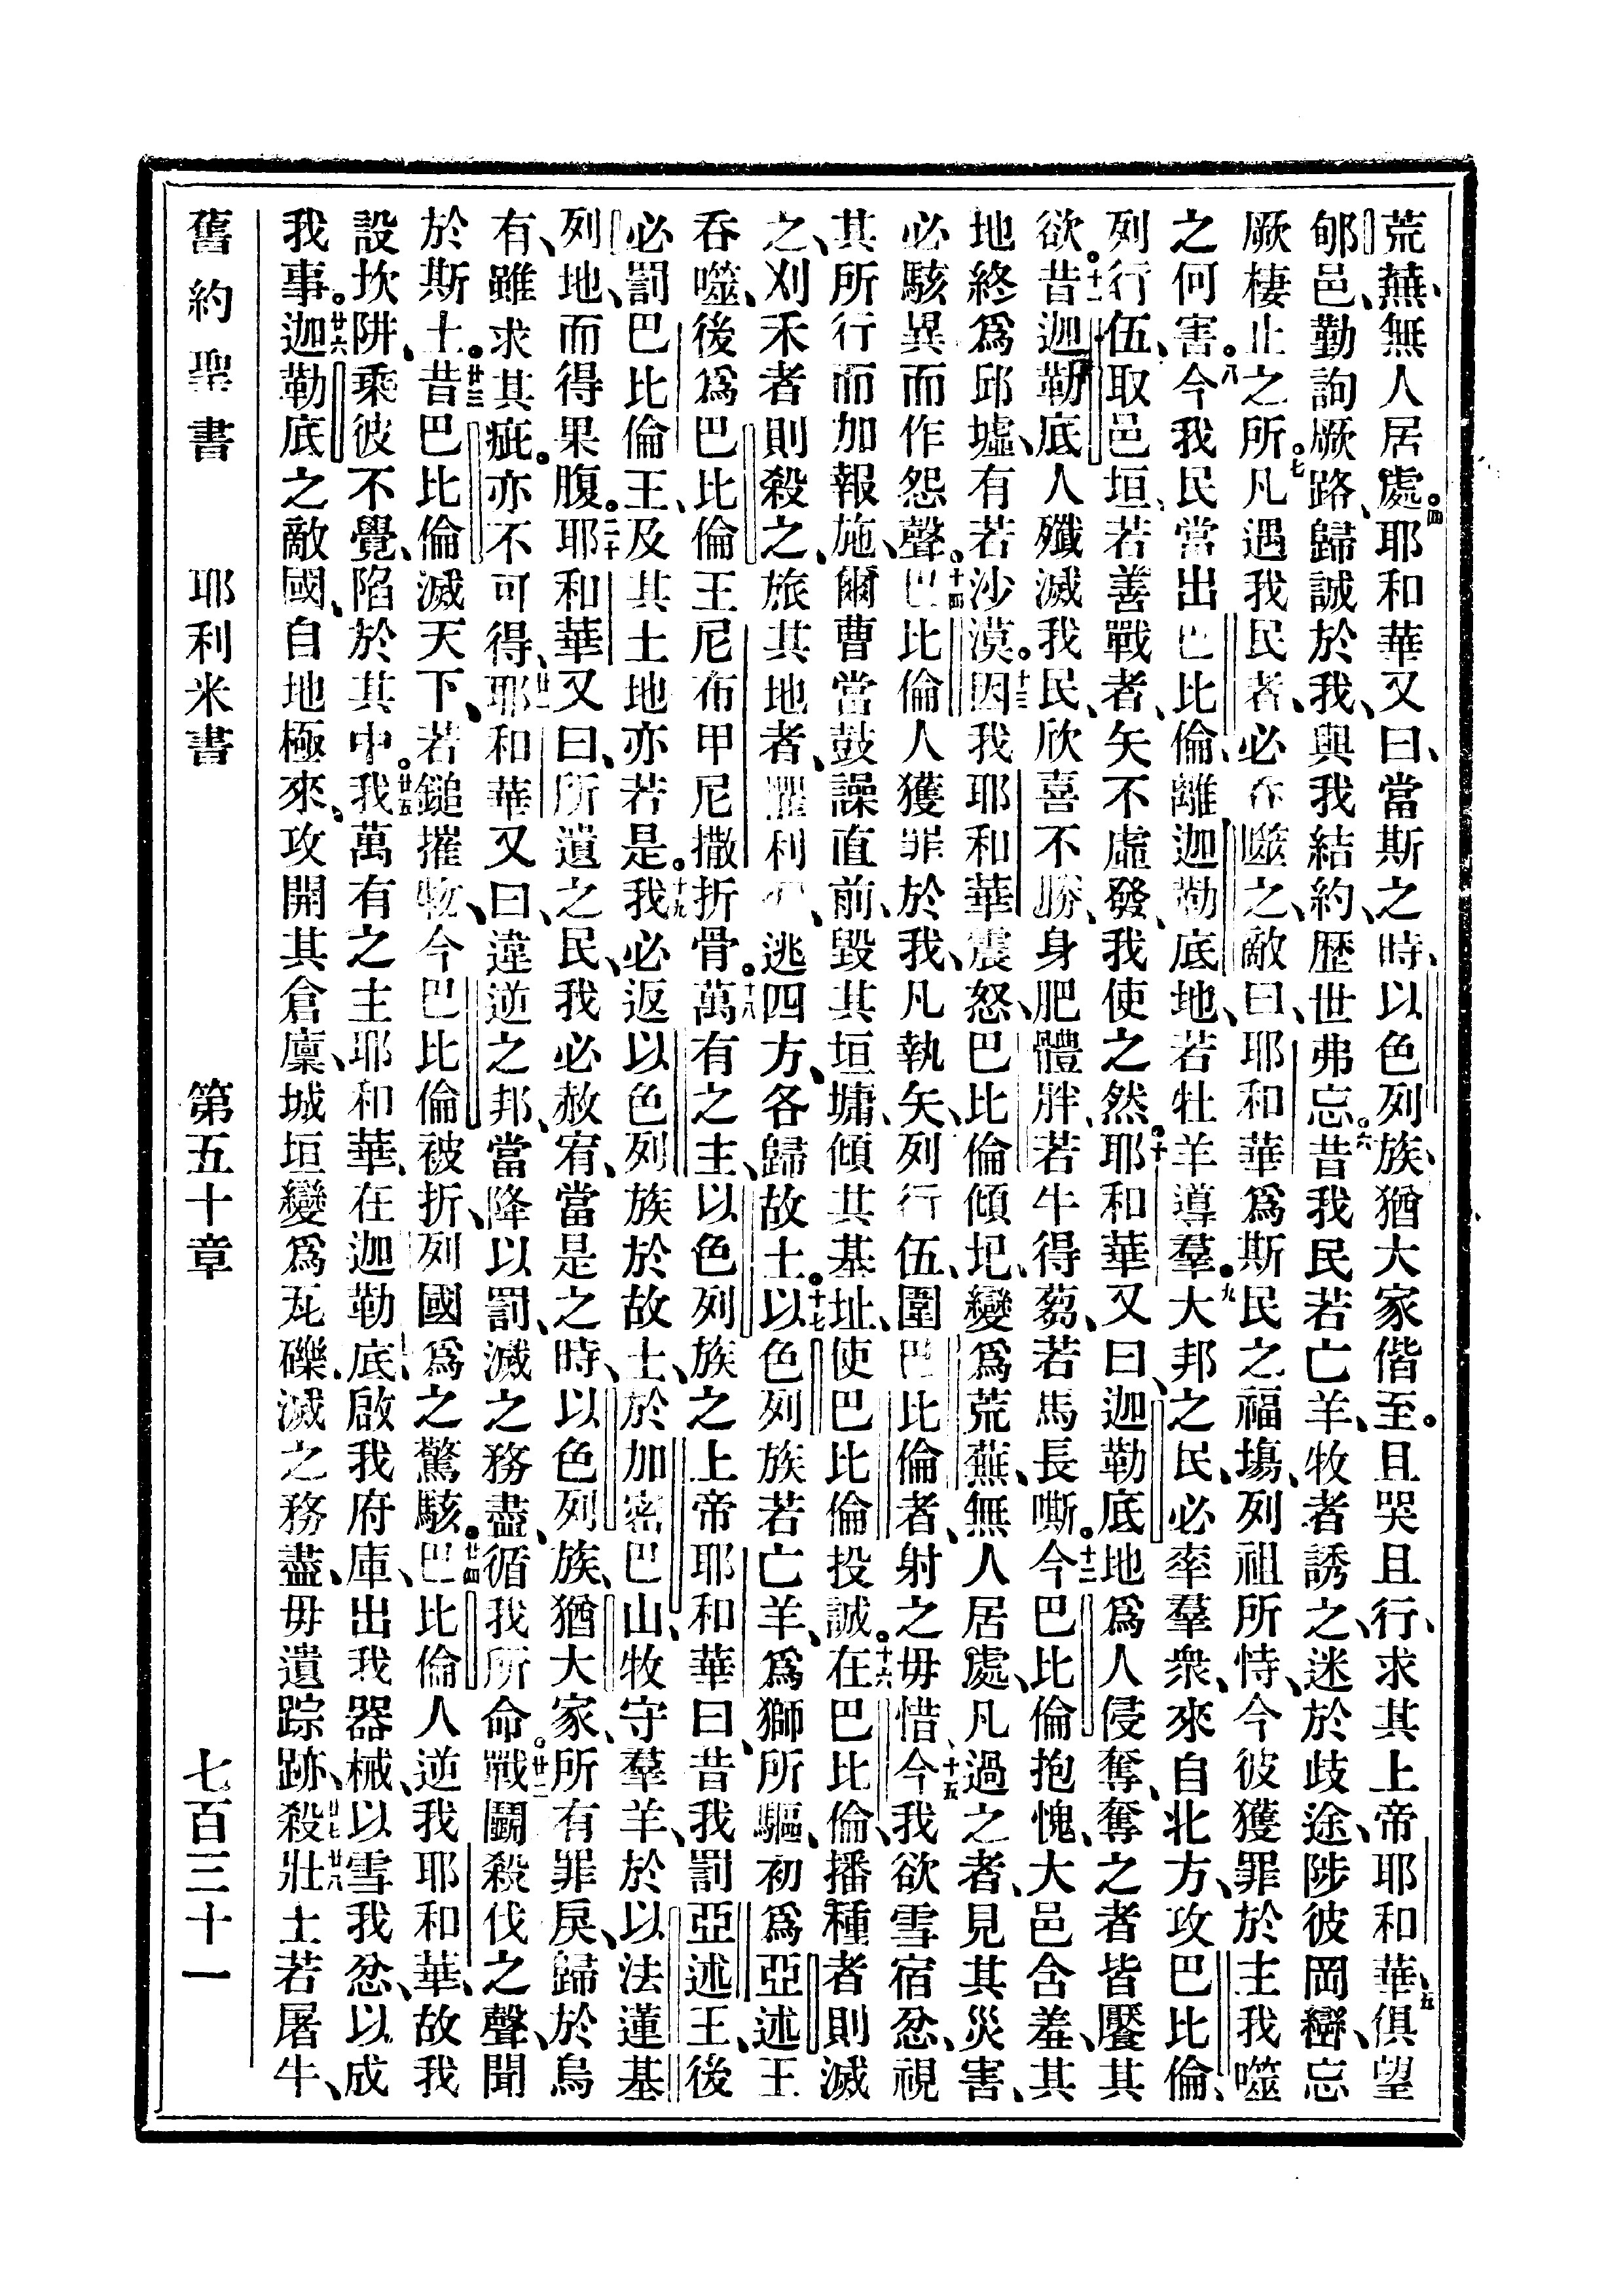 荒蕪、無人居處。四耶和華又曰、當斯之時、以色列族、猶大家偕至。且哭且行、求其上帝耶和華、五俱望
郇邑、勤詢厥路、歸誠於我、與我結約、歷世弗忘。六昔我民若亡羊、牧者誘之、迷於歧途、陟彼岡巒、忘
厥棲止之所。七凡遇我民者、必吞噬之、敵曰、耶和華爲斯民之福塲、列祖所恃、今彼獲罪於主、我噬
之何害。八今我民當出巴比倫、離迦勒底地、若牡羊導羣。九大邦之民、必率羣衆、來自北方、攻巴比倫、
列行伍、取邑垣、若善戰者、矢不虛發、我使之然。十耶和華又曰、迦勒底地爲人侵奪、奪之者皆饜其
欲。十一昔迦勒底人殲滅我民、欣喜不勝、身肥體胖、若牛得芻、若馬長嘶。十二今巴比倫抱愧、大邑含羞、其
地終爲邱墟、有若沙漠。十三因我耶和華震怒、巴比倫傾圯、變爲荒蕪、無人居處、凡過之者、見其災害、
必駭異而作怨聲。十四巴比倫人獲罪於我、凡執矢、列行伍、圍巴比倫者、射之毋惜、十五今我欲雪宿忿、視
其所行而加報施、爾曹當鼓譟直前、毀其垣墉、傾其基址、使巴比倫投誠。十六在巴比倫、播種者則滅
之、刈禾者則殺之、旅其地者、懼利、逃四方、各歸故土。十七以色列族若亡羊、爲獅所驅、初爲亞述王
吞噬、後爲巴比倫王尼布甲尼撒折骨。十八萬有之主、以色列族之上帝耶和華曰、昔我罰亞述王、後
必罰巴比倫王、及其土地亦若是。十九我必返以色列族於故土、於加密巴山、牧守羣羊、於以法蓮基
列地、而得果腹。二十耶和華又曰、所遺之民、我必赦宥、當是之時、以色列族、猶大家、所有罪戾、歸於烏
有、雖求其疵。亦不可得、廿一耶和華又曰、違逆之邦、當降以罰、滅之務盡、循我所命。廿二戰鬭殺伐之聲、聞
於斯土。廿三昔巴比倫滅天下、若鎚摧物、今巴比倫被折、列國爲之驚駭。廿四巴比倫人逆我耶和華、故我
設坎阱、乘彼不覺、陷於其中。廿五我萬有之主耶和華、在迦勒底、啟我府庫、出我器械、以雪我忿、以成
我事。廿六迦勒底之敵國、自地極來、攻開其倉廩、城垣變爲瓦礫、滅之務盡、毋遺踪跡、廿七廿八殺壯士若屠牛、
舊約聖書　耶利米書　第五十章　七百三十一